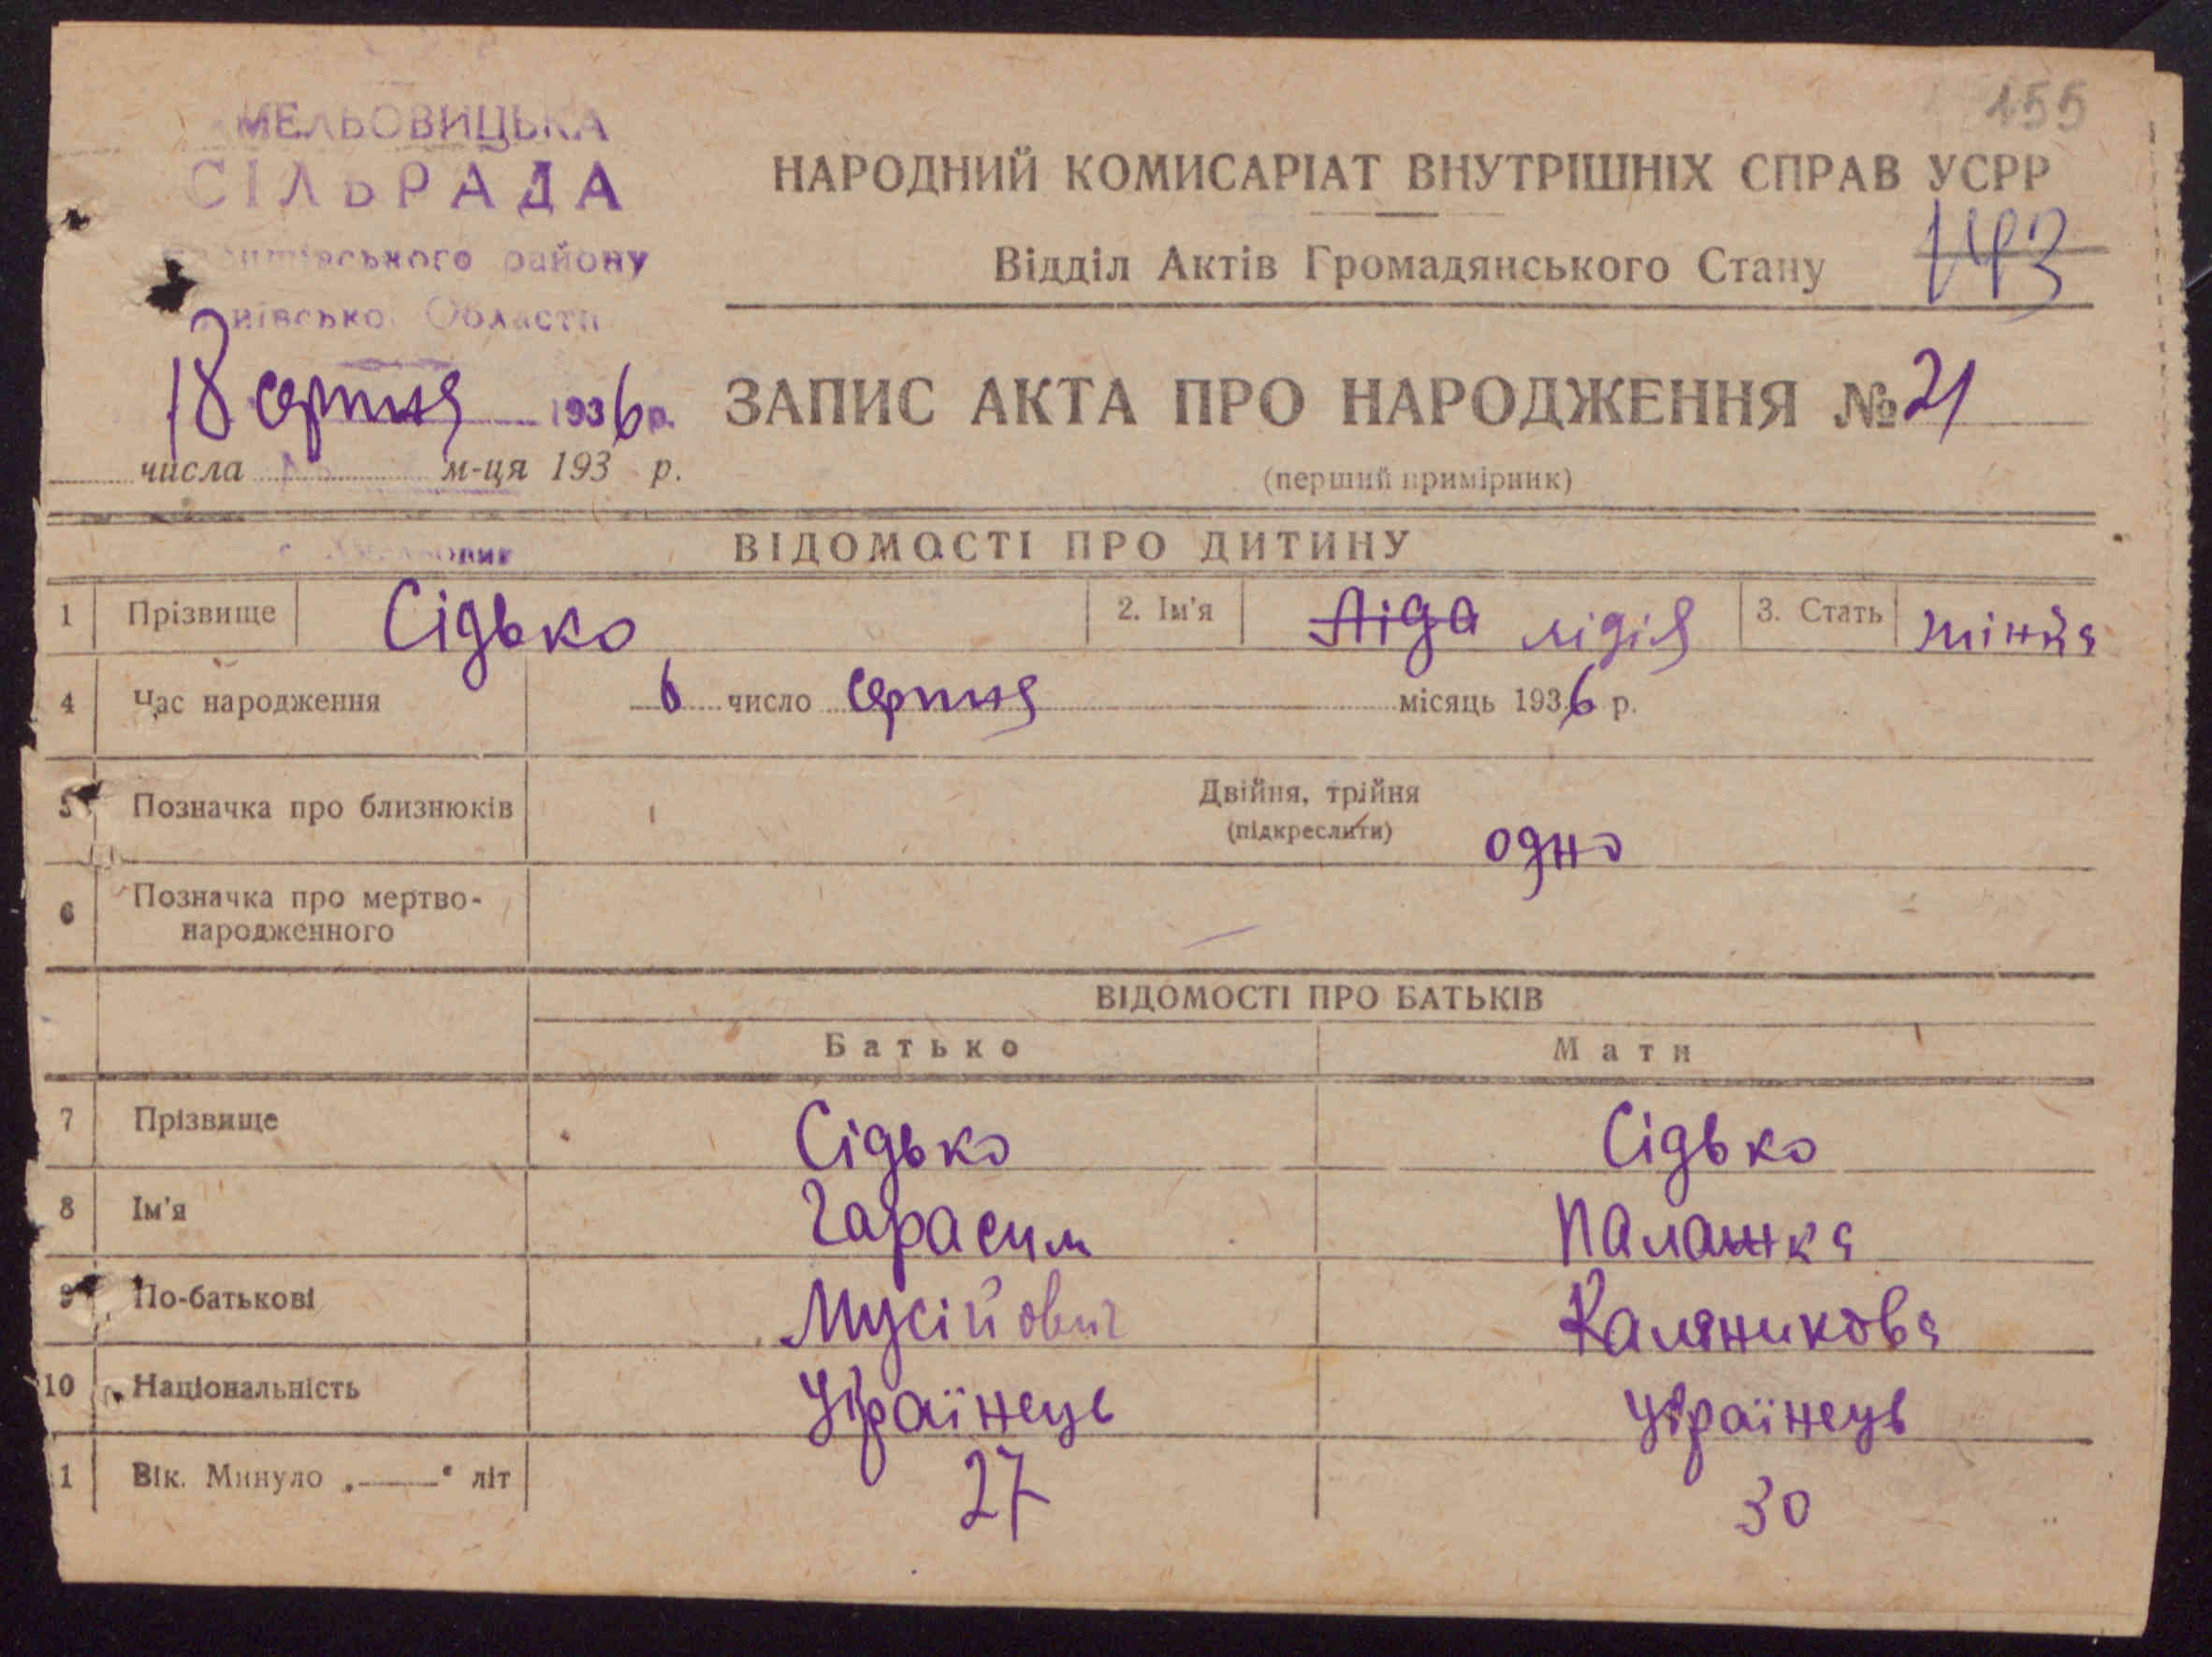 155
МЕЛЬОВИЦЬКА
СІЛЬРАДА
району
Області
18 серпня 1936 р.
числа м-ця 193 р.
НАРОДНИЙ КОМИСАРІАТ ВНУТРІШНІХ СПРАВ УСРР
Відділ Актів Громадянського Стану 143
ЗАПИС АКТА ПРО НАРОДЖЕННЯ № 21
(перший примірник)
ВІДОМОСТІ ПРО ДИТИНУ
1 Прізвище Сідько 2. Ім'я Ліда лідія 3. Стать
4 Час народження 6 число серпня місяць 1936 р.
5 Позначка про близнюків Двійня, трійня
(підкреслити) одно
6 Позначка про мертво-
народженного —
ВІДОМОСТІ ПРО БАТЬКІВ
Батько Мати
7 Прізвище Сідько Сідько
8 Ім'я Гарасим Палажка
9 По-батькові Мусійович Каляникова
10 Національність Українець українець
1 Вік. Минуло „——“ літ 27 30